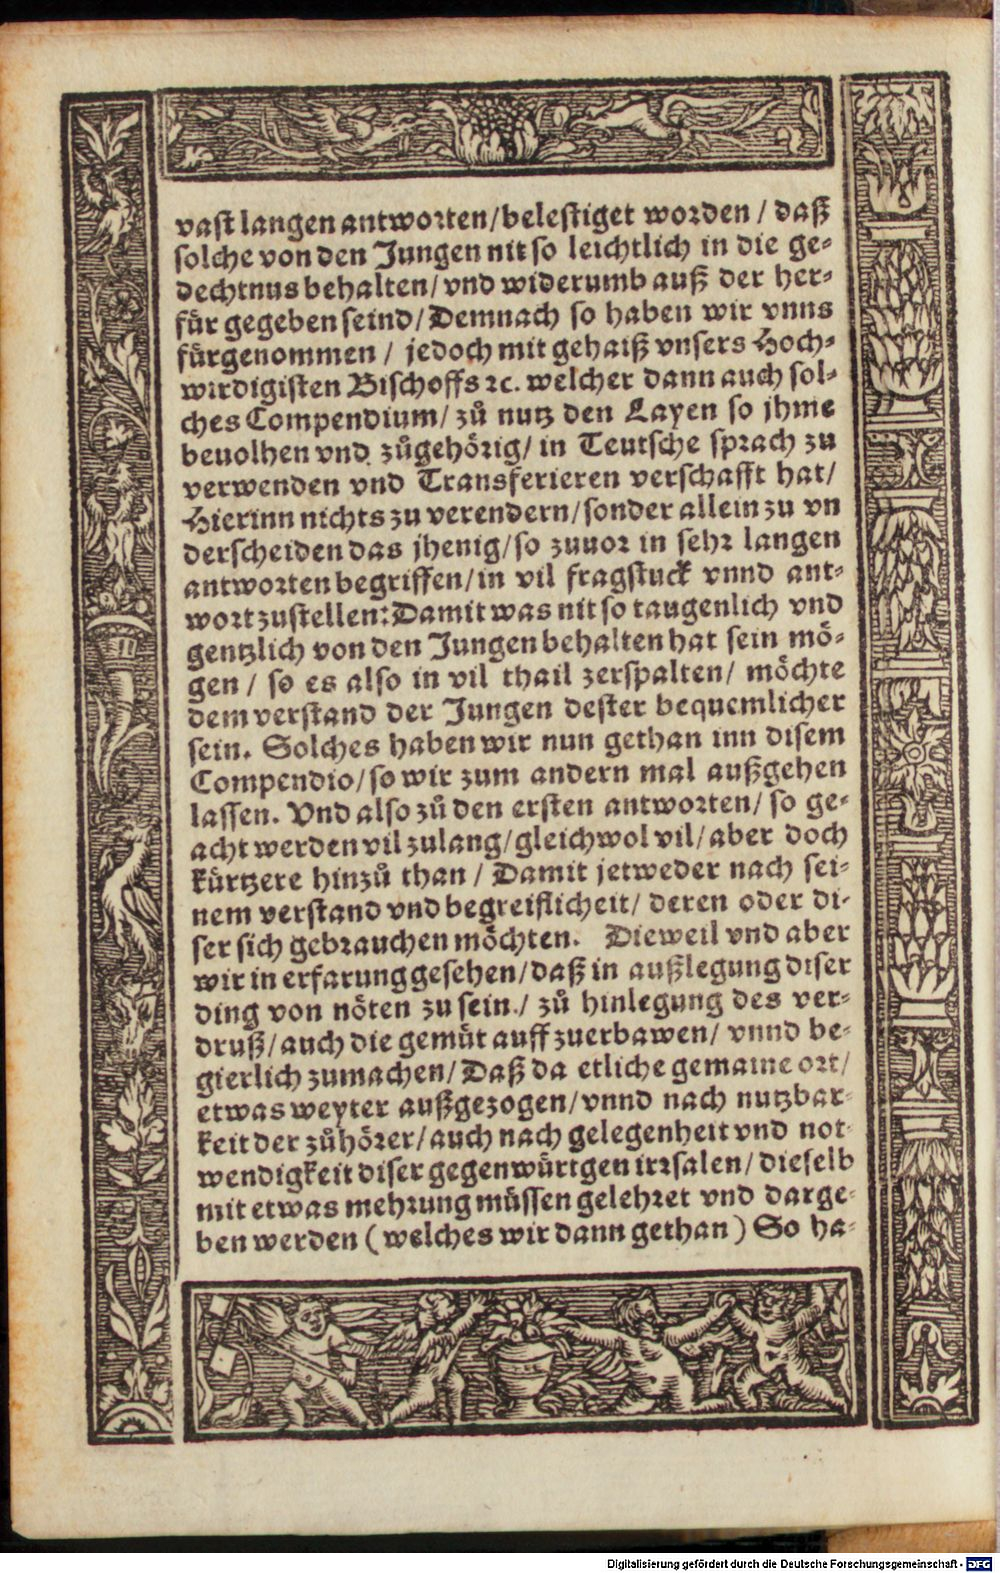 vast langen antworten/belestiget worden / daß
solche von den Jungen nit so leichtlich in die ge-
dechtnus behalten/vnd widerumb auß der her-
für gegeben seind/Demnach so haben wir vnns
fürgenommen / jedoch mit gehaiß vnsers Hoch-
wirdigisten Bischoffs ꝛc. welcher dann auch sol-
ches Compendium/ zů nutz den Layen so jhme
beuolhen vnd zůgehörig/ in Teutsche sprach zu
verwenden vnd Transferieren verschafft hat/
Hierinn nichts zu verendern/sonder allein zu vn
derscheiden das jhenig/so zuuor in sehr langen
antworten begriffen/in vil fragstuck vnnd ant-
wort zustellen: Damit was nit so taugenlich vnd
gentzlich von den Jungen behalten hat sein mö-
gen / so es also in vil thail zerspalten/ möchte
dem verstand der Jungen dester bequemlicher
sein. Solches haben wir nun gethan inn disem
Compendio/so wir zum andern mal außgehen
lassen. Vnd also zů den ersten antworten/ so ge-
acht werden vil zulang/gleichwol vil/aber doch
kürtzere hinzů than / Damit jetweder nach sei-
nem verstand vnd begreiflicheit/ deren oder di-
ser sich gebrauchen möchten. Dieweil vnd aber
wir in erfarung gesehen/daß in außlegung diser
ding von nöten zu sein/ zů hinlegung des ver-
druß/auch die gemüt auff zuerbawen/ vnnd be-
gierlich zumachen/Daß da etliche gemaine ort/
etwas weyter außgezogen/vnnd nach nutzbar-
keit der zůhörer/auch nach gelegenheit vnd not-
wendigkeit diser gegenwürtgen irrsalen/dieselb
mit etwas mehrung müssen gelehret vnd darge-
ben werden (welches wir dann gethan) So ha-
Digitalisierung gefördert durch die Deutsche Forschungsgemeinschaft - DFG